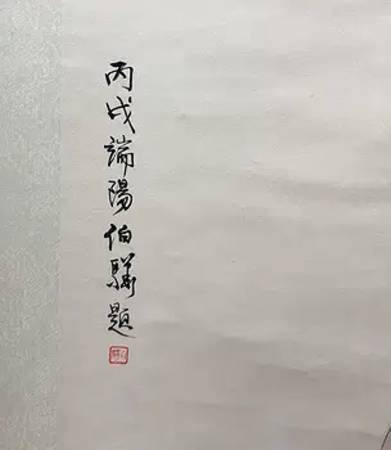 丙戌端陽伯驥題